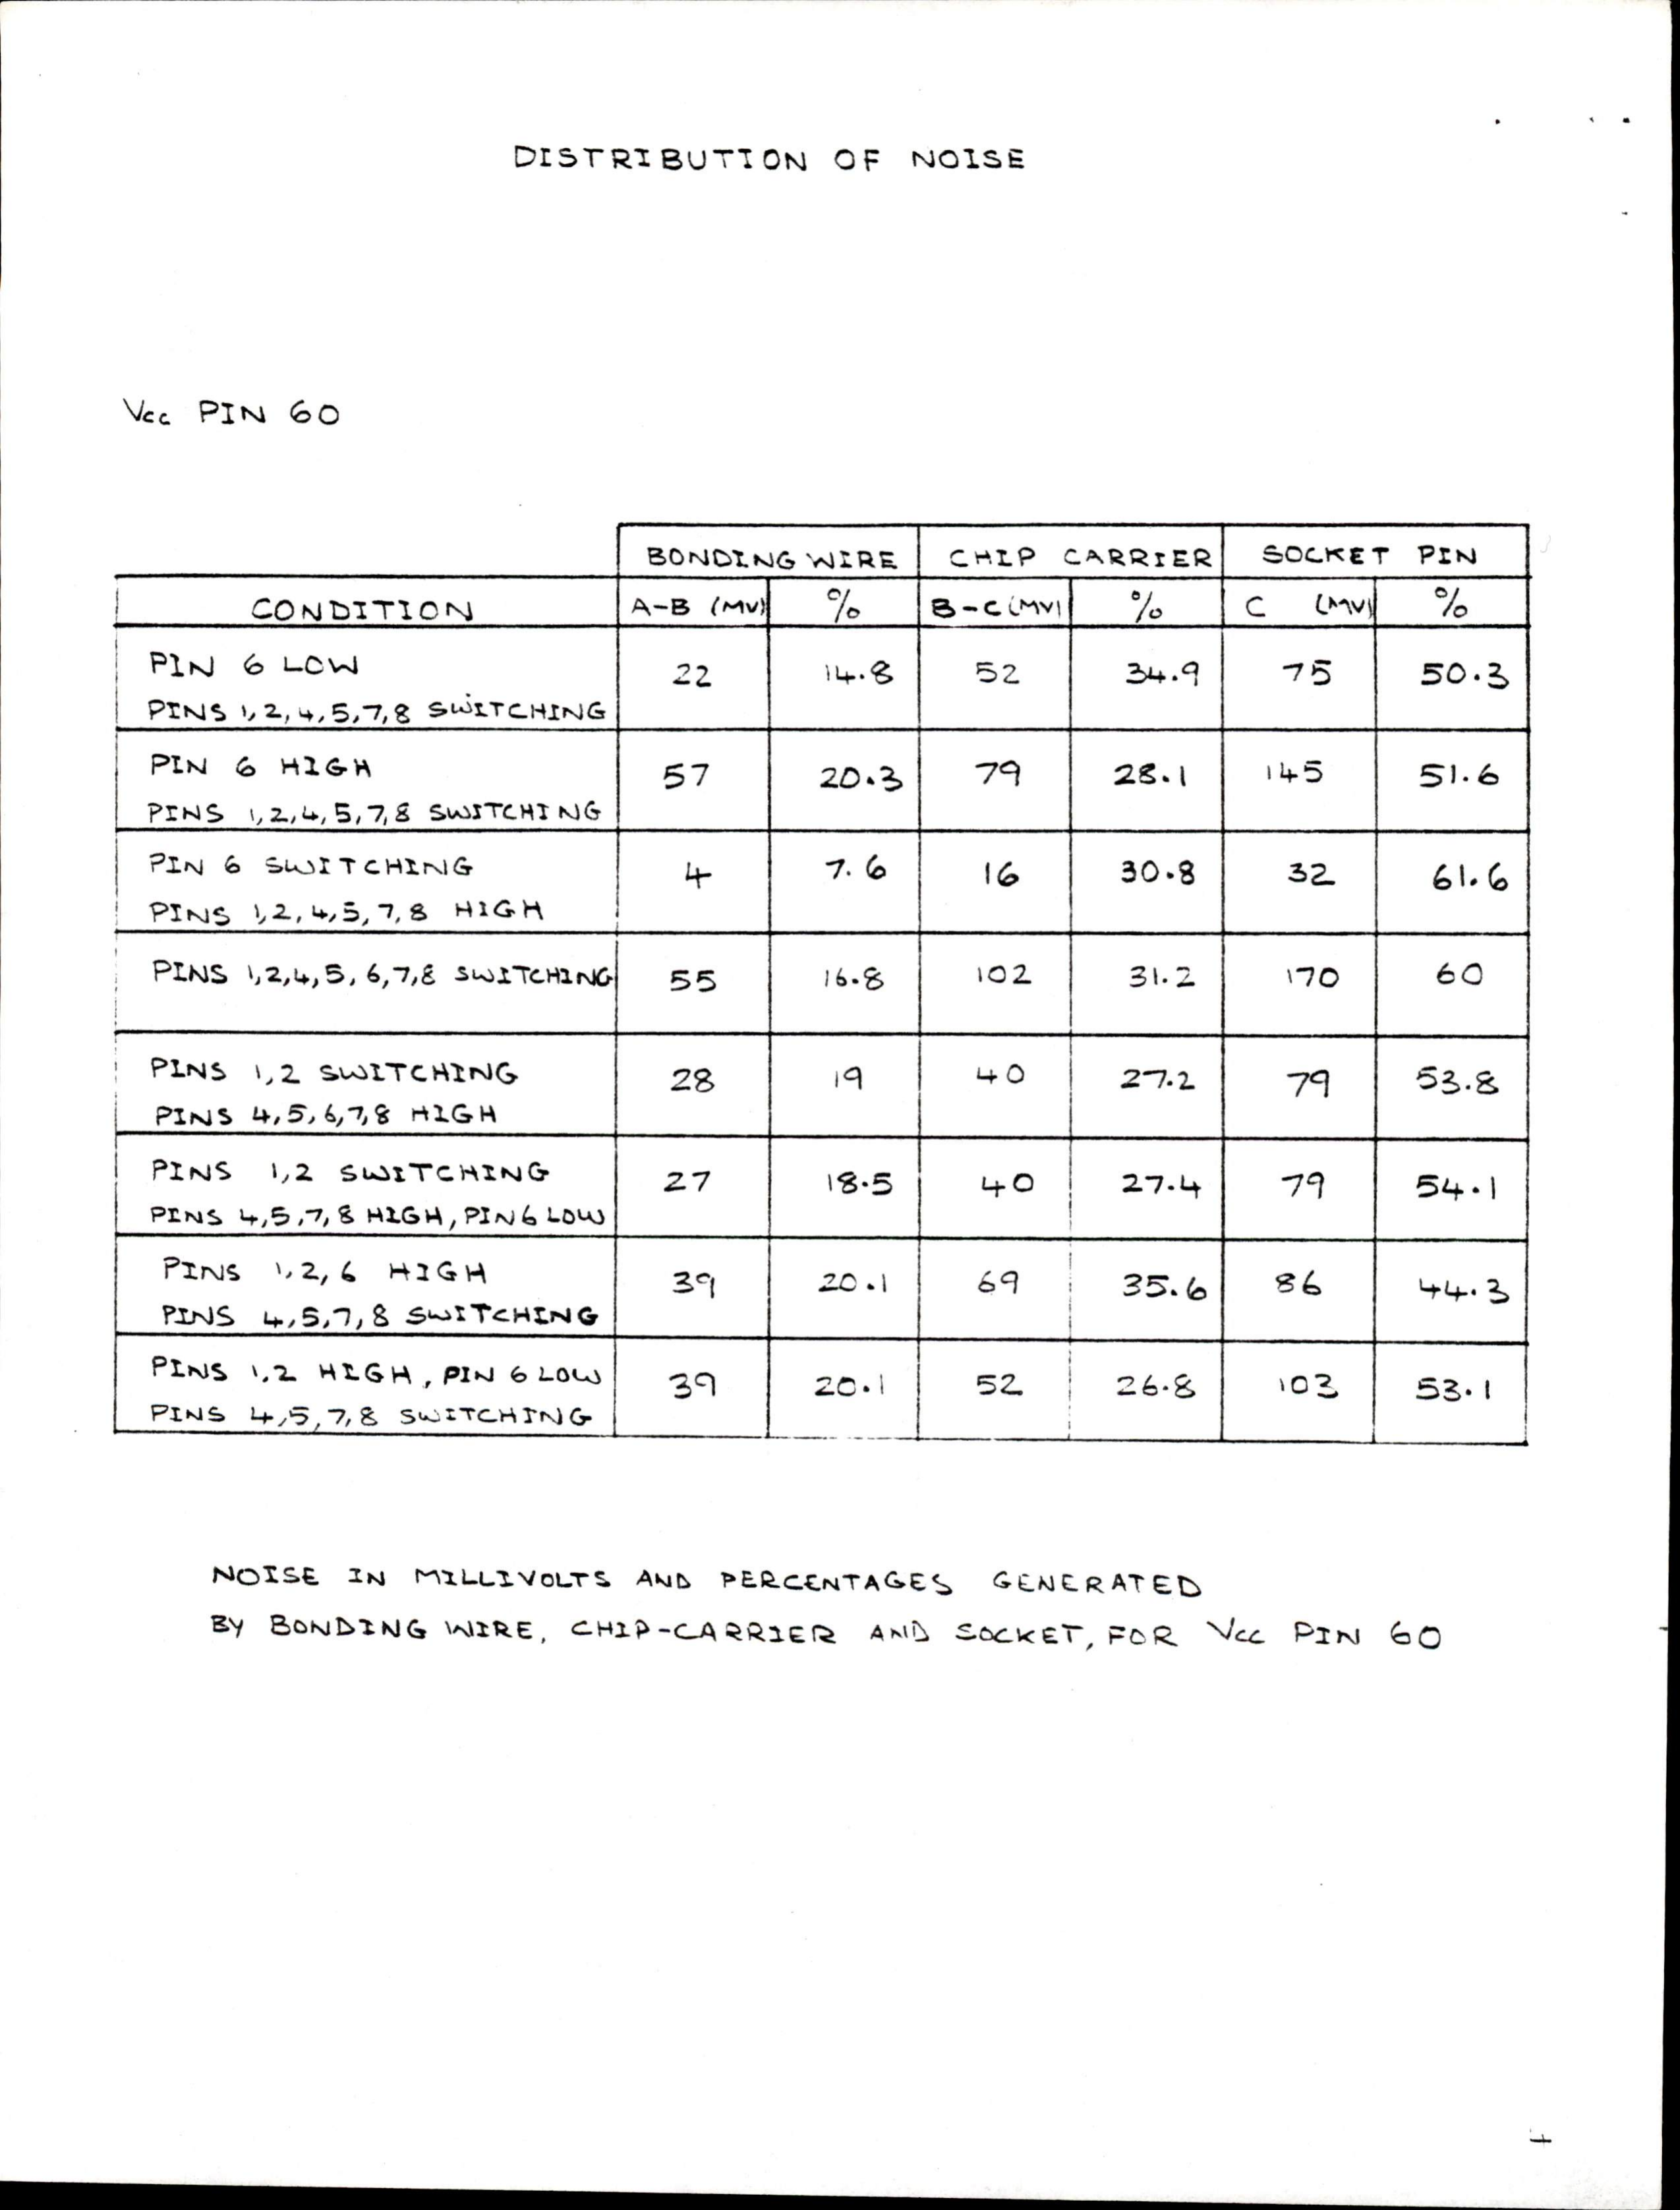 DISTRIBUTION OF NOISE
Vcc PIN 60
BONDING WIRE CHIP CARRIER SOCKET PIN
CONDITION A-B (MV) % B-C (MV) % C (MV) %
PIN 6 LOW
PINS 1,2,4,5,7,8 SWITCHING 22 14.8 52 34.9 75 50.3
PIN 6 HIGH
PINS 1,2,4,5,7,8 SWITCHING 57 20.3 79 28.1 145 51.6
PIN 6 SWITCHING
PINS 1,2,4,5,7,8 HIGH 4 7.6 16 30.8 32 61.6
PINS 1,2,4,5,6,7,8 SWITCHING 55 16.8 102 31.2 170 60
PINS 1,2 SWITCHING
PINS 4,5,6,7,8 HIGH 28 19 40 27.2 79 53.8
PINS 1,2 SWITCHING
PINS 4,5,7,8 HIGH, PIN 6 LOW 27 18.5 40 27.4 79 54.1
PINS 1,2,6 HIGH
PINS 4,5,7,8 SWITCHING 39 20.1 69 35.6 86 44.3
PINS 1,2 HIGH, PIN 6 LOW
PINS 4,5,7,8 SWITCHING 39 20.1 52 26.8 103 53.1
NOISE IN MILLIVOLTS AND PERCENTAGES GENERATED
BY BONDING WIRE, CHIP-CARRIER AND SOCKET, FOR Vcc PIN 60